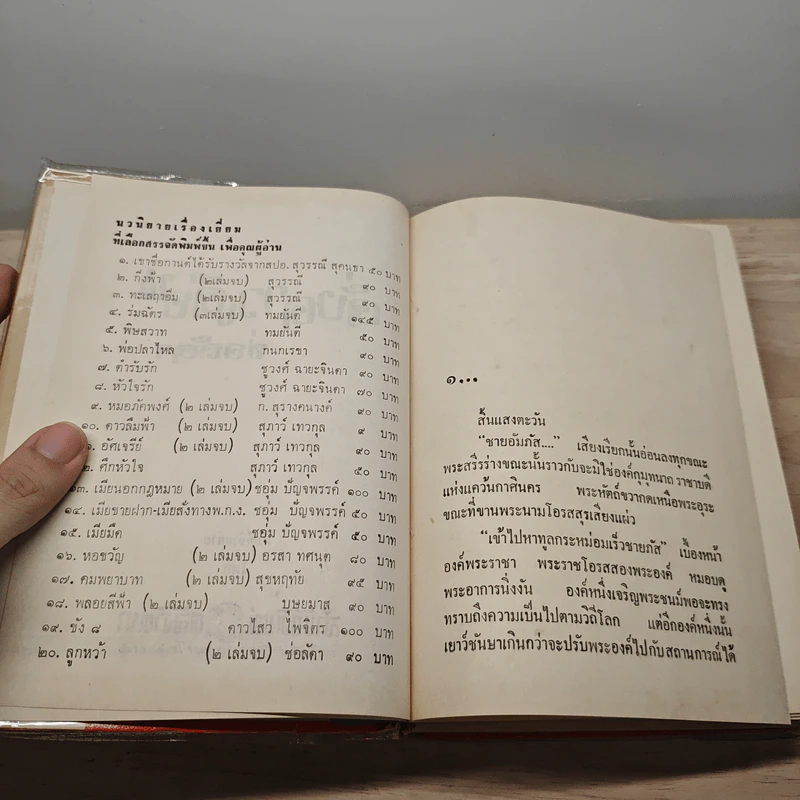 นวนิยายเรื่องเยี่ยม
ที่เลือกสรรจัดพิมพ์ขึ้น เพื่อคุณผู้อ่าน
๑. เขาชื่อกานต์ได้รับรางวัลจากสปอ. สุวรรณี สุคนธา ๕๐ บาท
๒. กิ่งฟ้า (๒เล่มจบ) สุวรรณี ๙๐ บาท
๓. ทะเลฤาอิ่ม (๒เล่มจบ) สุวรรณี ๙๐ บาท
๔. ร่มฉัตร (๓เล่มจบ) ทมยันตี ๑๔๕ บาท
๕. พิษสวาท ทมยันตี ๕๐ บาท
๖. พ่อปลาไหล กนกเรขา ๙๐ บาท
๗. ตำรับรัก ชูวงศ์ ฉายะจินดา ๙๐ บาท
๘. หัวใจรัก ชูวงศ์ ฉายะจินดา ๗๐ บาท
๙. หมอภัคพงศ์ (๒ เล่มจบ) ก. สุรางคนางค์ ๙๐ บาท
๑๐. ดาวลืมฟ้า (๒ เล่มจบ) สุภาว์ เทวกุล ๙ บาท
๑. อัศเจรีย์ (๒ เล่มจบ) สุภาว์ เทวกุล ๙๐ บาท
๒. ศึกหัวใจ สุภาว์ เทวกุล ๕๐ บาท
๑๓. เมียนอกกฎหมาย (๒ เล่มจบ) ชอุ่ม ปัญจพรรค์ ๑๐๐ บาท
๑๔. เมียขายฝาก-เมียสั่งทางพ.ก.ง. ชอุ่ม ปัญจพรรค์ ๕๐ บาท
๑๕. เมียมืด ชอุ่ม ปัญจพรรค์ ๕๐ บาท
๑๖. หอขวัญ (๒ เล่มจบ) อรสา ทศนุต ๘๐ บาท
๑๗. คมพยาบาท (๒ เล่มจบ) สุขหฤทัย ๙๕ บาท
๑๘. พลอยสีฟ้า (๒ เล่มจบ) บุษยมาส ๙๐ บาท
๑๙. ขัง ๘ ดาวไสว ไพจิตร ๑๐๐ บาท
๒๐. ลูกหว้า (๒ เล่มจบ) ช่อลัดา ๙๐ บาท
๑...
สิ้นแสงตะวัน
“ชายอัมภัส....” เสียงเรียกนั้นอ่อนลงทุกขณะ
พระสรีรร่างขณะนั้นราวกับจะมิใช่องค์กุมุทนาถ ราชาบดี
แห่งแคว้นกาศินคร พระหัตถ์ขวากดเหนือพระอุระ
ขณะที่ขานพระนามโอรสสุรเสียงแผ่ว
“เข้าไปหาทูลกระหม่อมเร็วชายภัส” เบื้องหน้า
องค์พระราชา พระราชโอรสสองพระองค์ หมอบดู
พระอาการนิ่งงัน องค์หนึ่งเจริญพระชนม์พอจะทรง
ทราบถึงความเป็นไปตามวิถีโลก แต่อีกองค์หนึ่งนั้น
เยาว์ชันษาเกินกว่าจะปรับพระองค์ไปกับสถานการณ์ได้